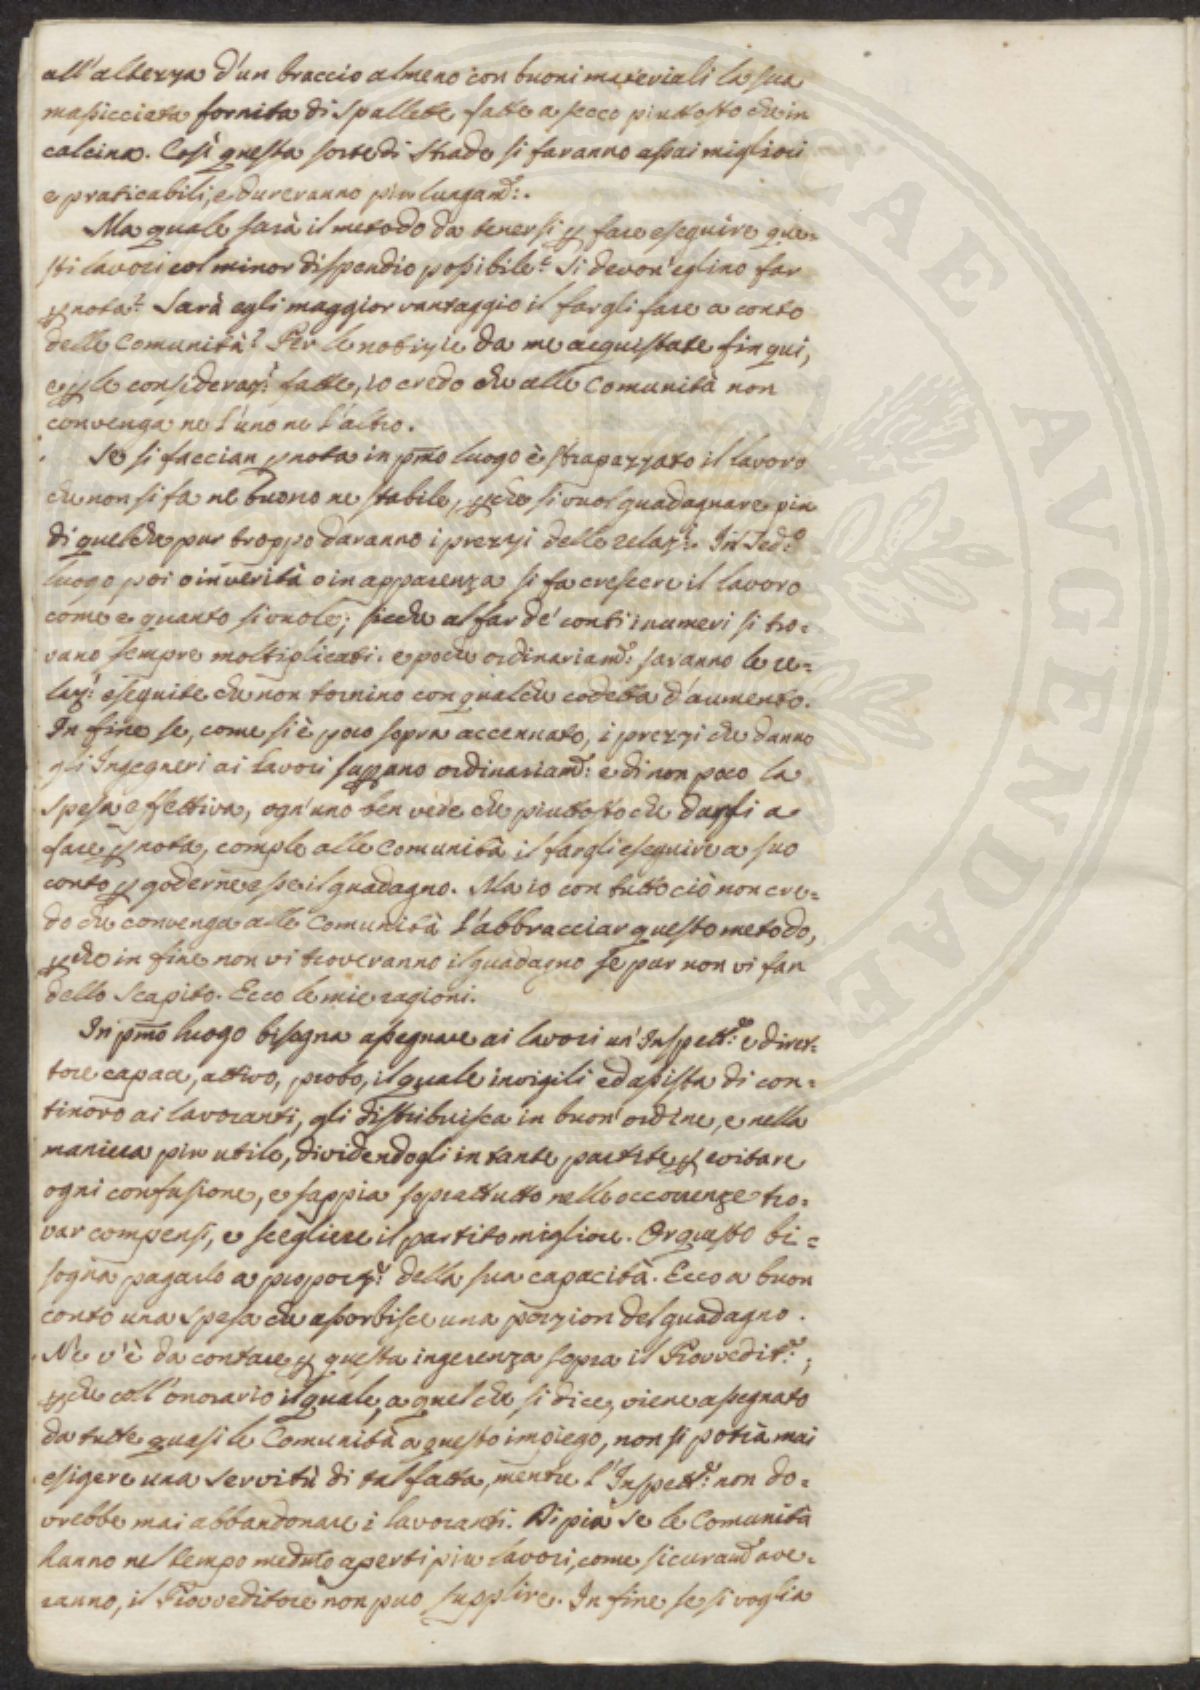 all'altezza d'un braccio almeno con buoni materiali la sua
massicciata fornita di spallette fatte a secco piuttosto che in
calcina. Così questa sorte di strade si faranno assai migliori
e praticabili, e dureranno più lungam.e.
Ma quale sarà il metodo da tenersi p fare eseguire que=
sti lavori col minor dispendio possibile? Si devon'eglino far
p nota? Sarà egli maggior vantaggio il fargli fare a conto
delle Comunità? Per le notizie da me acquistate fin qui,
e p le consideraz.i fatte, io credo che alle Comunità non
convenga ne l'uno ne l'altro.
Se si faccian p nota in pmo luogo è strapazzato il lavoro
che non si fa ne buono ne stabile, pche si vuol guadagnare più
di quel che pur troppo daranno i prezzi delle relaz.i. In Sed.o
luogo poi o in verità o in apparenza si fa crescere il lavoro
come e quanto si vuole; sicche al far de' conti i numeri si tro=
vano sempre moltiplicati. e poche ordinariam.e saranno le re=
laz.i eseguite che non tornino con qualche codetta d'aumento.
In fine se, come si è poco sopra accennato, i prezzi che danno
gl'Ingegneri ai lavori suppano ordinariam.e e di non poco la
spesa effettiva, ogn'uno ben vede che piuttosto che dargli a
fare p nota, comple alle Comunità il fargli eseguire a suo
conto p goderne esse il guadagno. Ma io con tutto ciò non cre=
do che convenga alle Comunità l'abbracciar questo metodo,
pche in fine non vi troveranno il guadagno se pur non vi fan
dello scapito. Ecco le mie ragioni.
In pmo luogo bisogna assegnare ai lavori un'Inspett.e e diret=
tore capace, attivo, probo, il quale invigili ed assista di con=
tinovo ai lavoranti, gli distribuisca in buon'ordine, e nella
maniera più utile, dividendogli in tante partite p evitare
ogni confusione, e sappia soprattutto nelle occorrenze tro=
var compensi, e scegliere il partito migliore. Or questo bi=
sogna pagarlo a proporz.e della sua capacità. Ecco a buon
conto una spesa che assorbisce una porzion del guadagno.
Ne v'è da contare p questa ingerenza sopra il Provvedit.e;
pche coll'onorario il quale, a quel che si dice, viene assegnato
da tutte quasi le Comunità a questo impiego, non si potrà mai
esigere una servitù di tal fatta, mentre l'Inspett.e non do=
vrebbe mai abbandonare i lavoranti. Di più se le Comunità
hanno nel tempo med.mo aperti più lavori, come sicuram.e ave=
ranno, il Provveditore non può supplire. In fine se si voglia